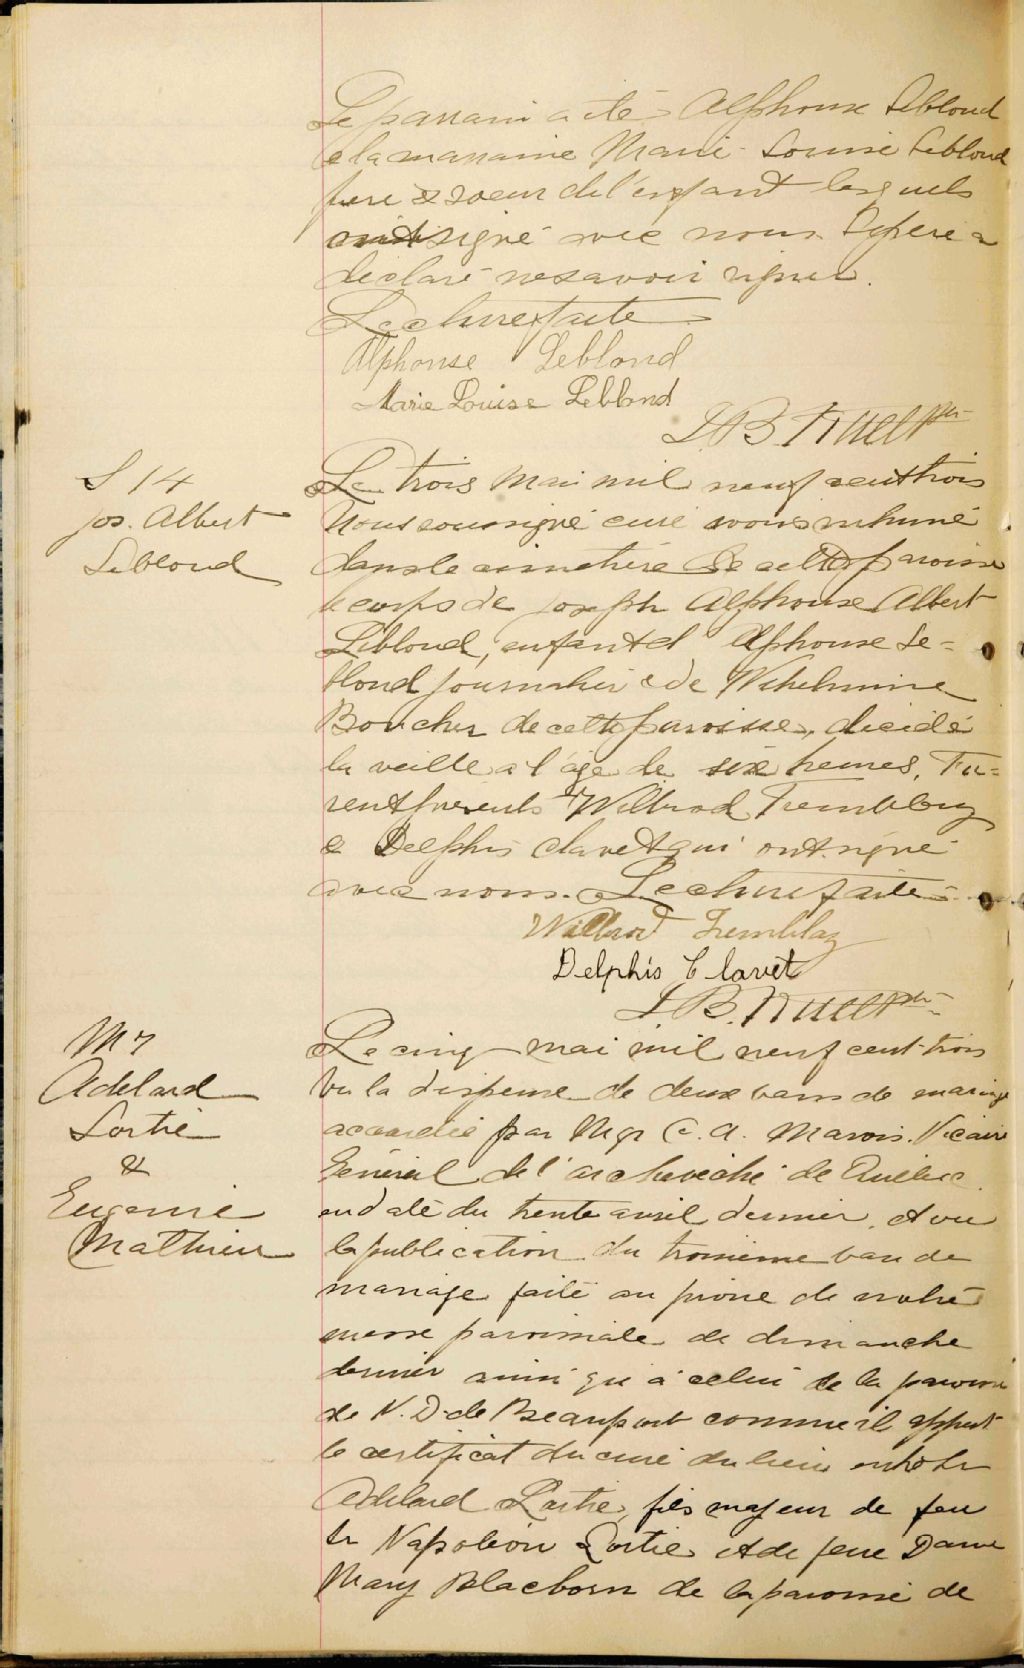 Le parrain a été Alphonse Leblond
& la marraine Marie-Louise Leblond
frère & soeur de l'enfant lesquels
ont signé avec nous. Le père a
déclaré ne savoir signer.
Lecture faite
Alphonse Leblond
Marie Louise Leblond
J.B. Ruel Ptr
S 14
Jos. Albert
Leblond
Le trois Mai mil neuf cent trois
Nous soussigné curé avons inhumé
dans le cimetière de cette paroisse
le corps de Joseph Alphonse Albert
Leblond, enfant d'Alphonse Le=
blond journalier & de Wilhelmine
Boucher de cette paroisse, décédé
la veille a l'age de six heures, Fu=
rent présents Willbrod Tremblay
& Delphis Clavet qui ont signé
avec nous. Lecture faite
Willbrod Tremblay
Delphis Clavet
J.B. Ruel Ptr
M 7
Adelard
Lortie
&
Eugenie
Mathieu
Le cinq mai mil neuf cent-trois
Vu la dispense de deux bans de mariage
accordée par Mgr C. A. Marois. Vicaire
Général de l'archevêché de Québec
en date du trente avril dernier, et vu
la publication du troisième ban de
mariage faite au prone de notre
messe paroissiale de dimanche
dernier ainsi qu'à celui de la paroisse
de N. D. de Beauport comme il appert
le certificat du curé du lieu entre Sr
Adelard Lortie, fils majeur de feu
Sr Napoléon Lortie et de feue Dame
Mary Blacborn de la paroisse de